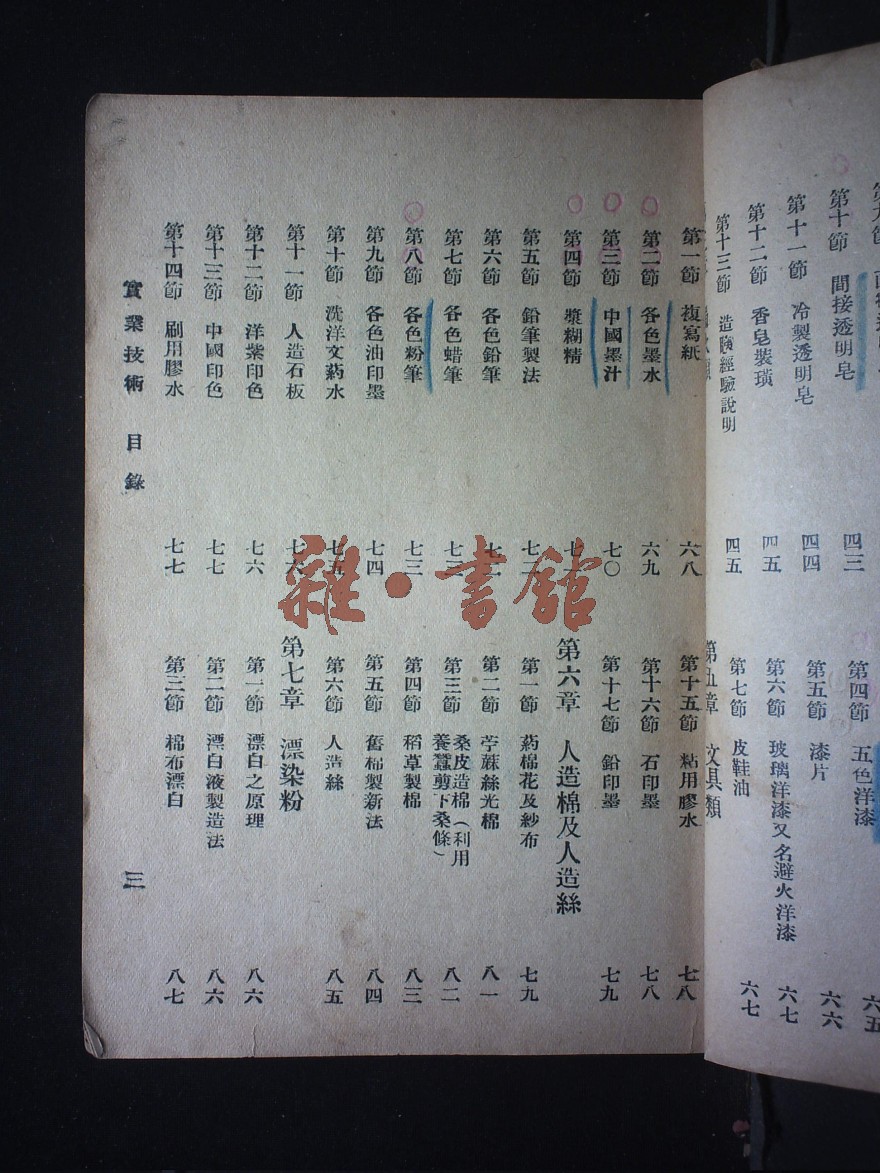 第十節 間接透明皂 四三
第十一節 冷製透明皂 四四
第十二節 香皂裝璜 四五
第十三節 造胰經驗說明 四五
第四節 五色洋漆 六五
第五節 漆片 六六
第六節 玻璃洋漆又名避火洋漆 六七
第七節 皮鞋油 六七
第五章 文具類
第一節 複寫紙 六八
第二節 各色墨水 六九
第三節 中國墨汁 七〇
第四節 漿糊精
第五節 鉛筆製法
第六節 各色鉛筆
第七節 各色蜡筆
第八節 各色粉筆 七三
第九節 各色油印墨 七四
第十節 洗洋文葯水 七五
第十一節 人造石板 七六
第十二節 洋紫印色 七六
第十三節 中國印色 七七
第十四節 刷用膠水 七七
第十五節 粘用膠水 七八
第十六節 石印墨 七八
第十七節 鉛印墨 七九
第六章 人造棉及人造絲
第一節 葯棉花及紗布 七九
第二節 苧蔴絲光棉 八一
第三節 桑皮造棉(利用養蠶剪下桑條) 八二
第四節 稻草製棉 八三
第五節 舊棉製新法 八四
第六節 人造絲 八五
第七章 漂染粉
第一節 漂白之原理 八六
第二節 漂白液製造法 八六
第三節 棉布漂白 八七
實業技術 目錄 三
雜·書館